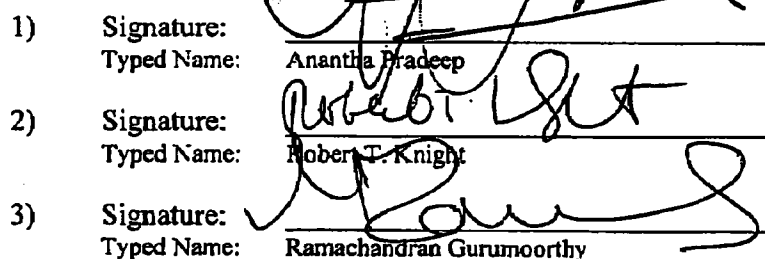 1) Signature:
Typed Name: Anantha Pradeep
2) Signature: Robert T. Knight
Typed Name: Robert T. Knight
3) Signature:
Typed Name: Ramachandran Gurumoorthy